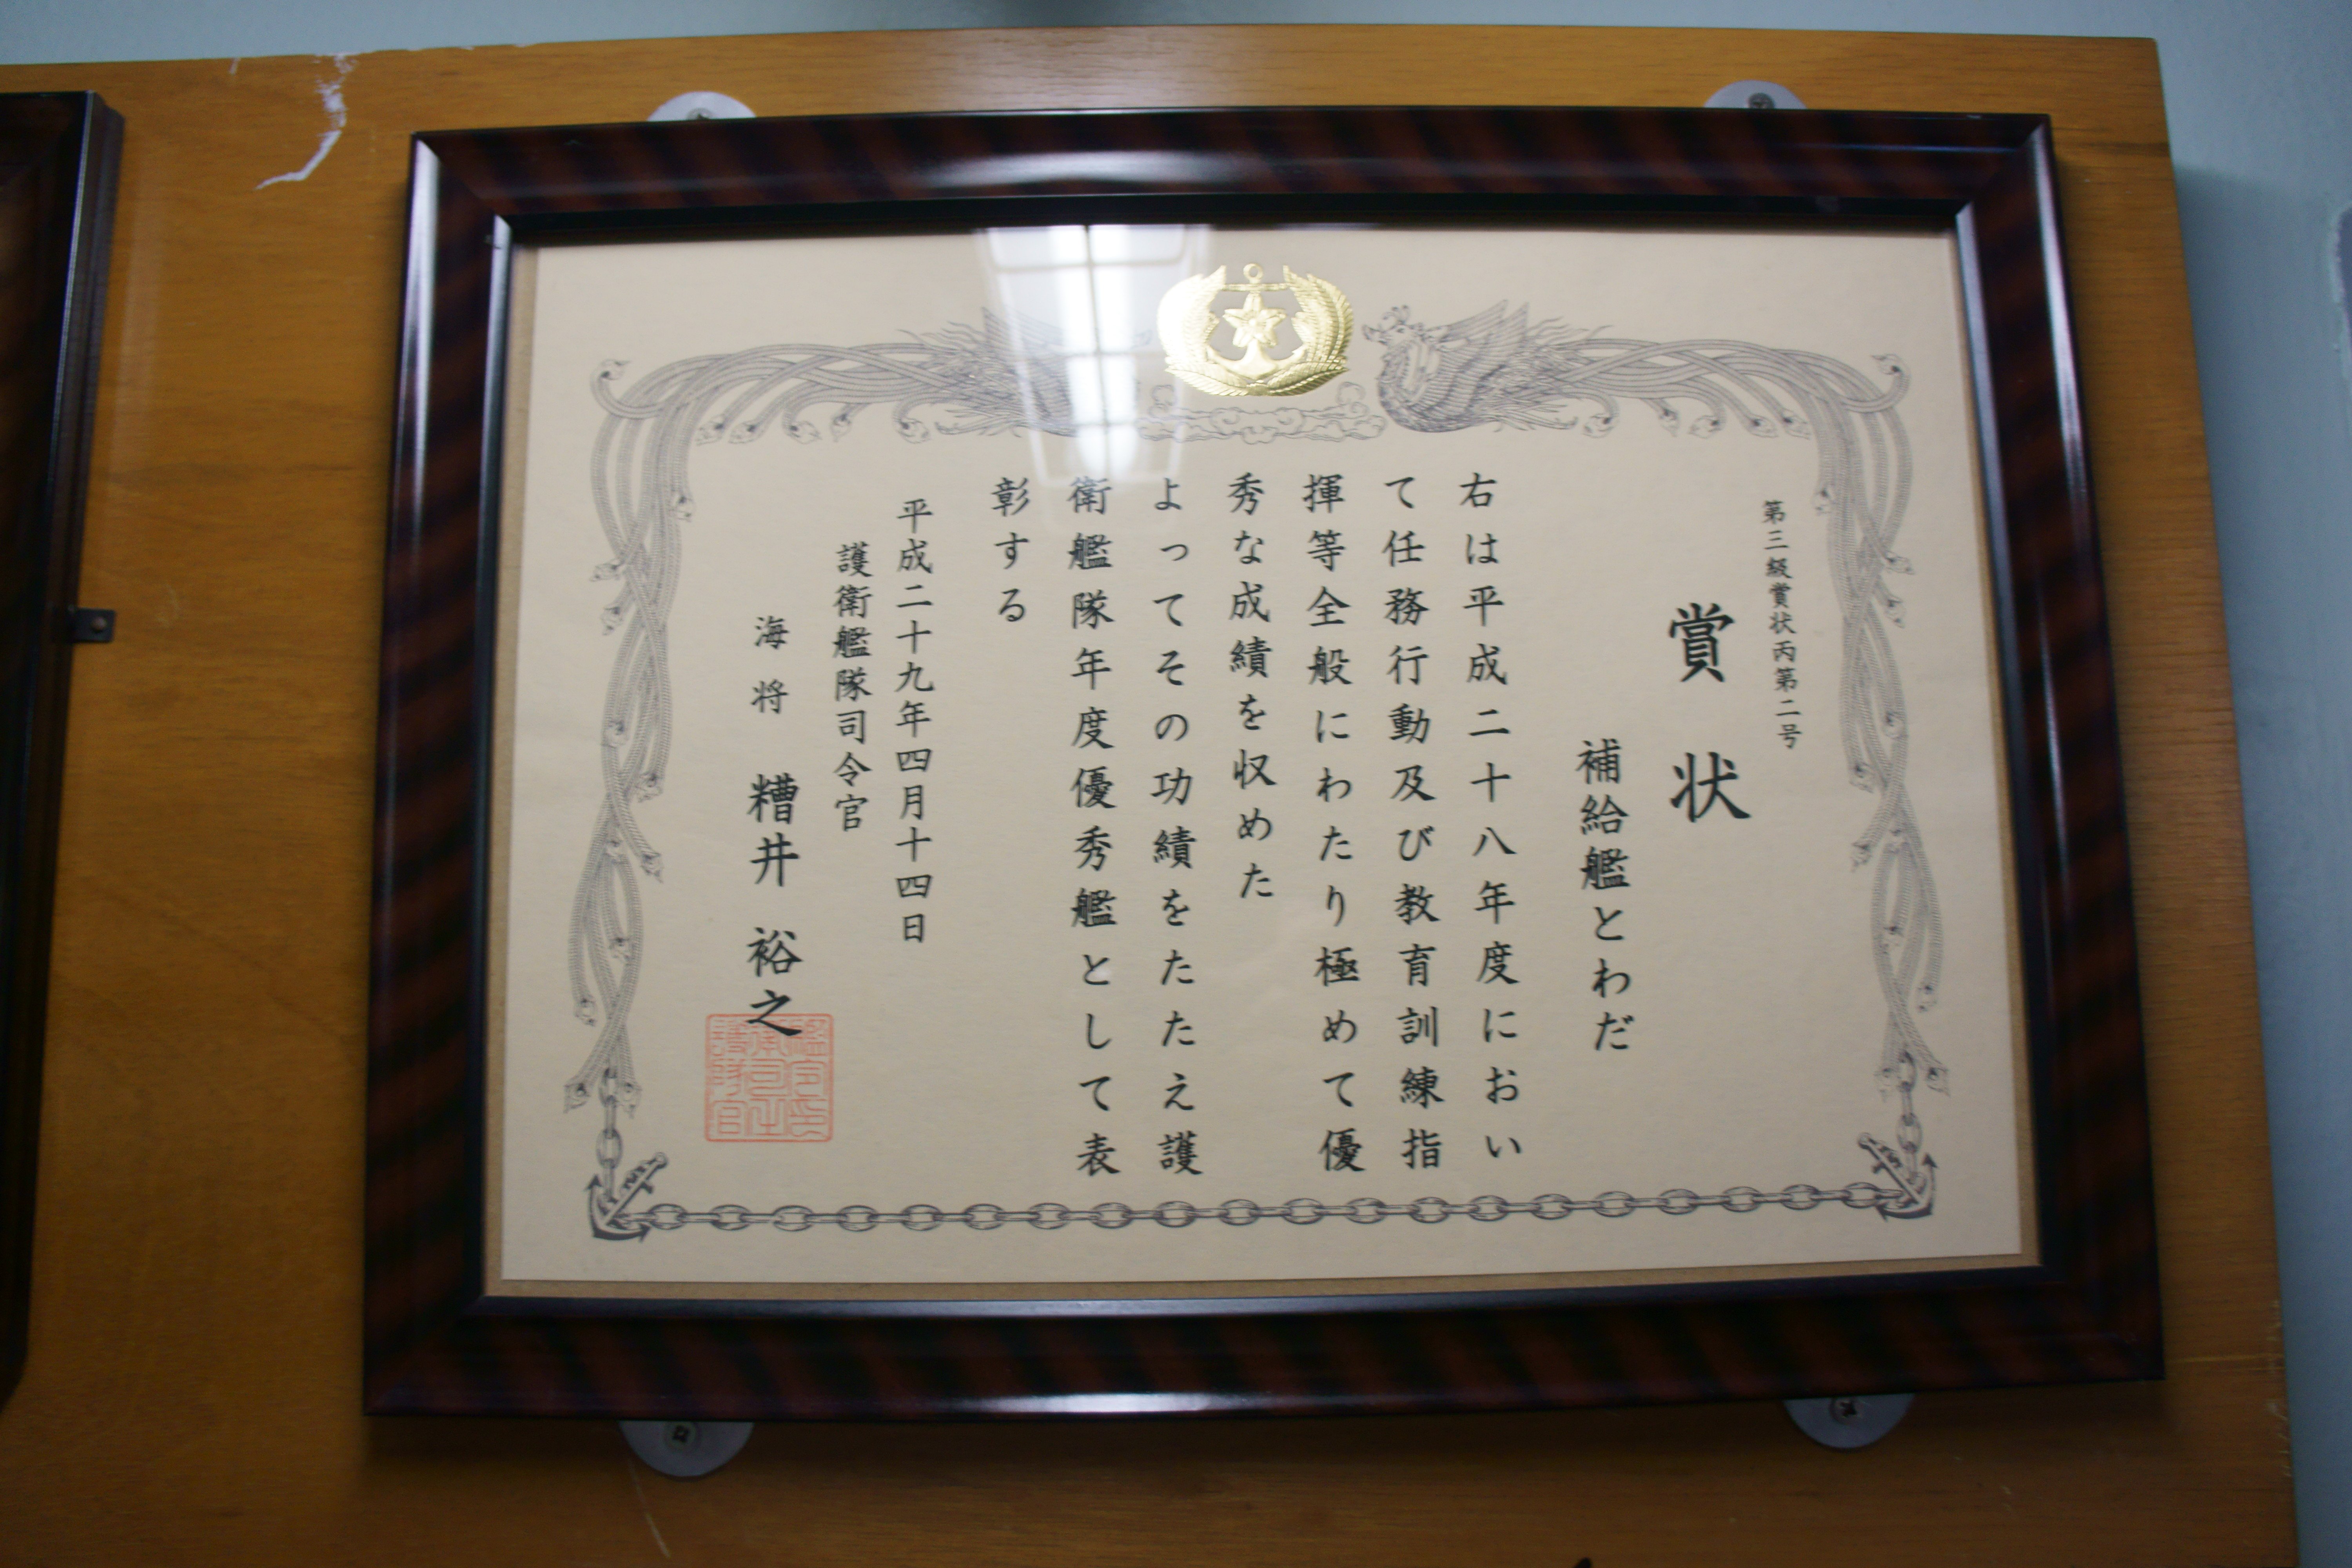 第三級賞状丙第二号
賞状
補給艦とわだ
右は平成二十八年度におい
て任務行動及び教育訓練指
揮等全般にわたり極めて優
秀な成績を収めた
よってその功績をたたえ護
衛艦隊年度優秀艦として表
彰する
平成二十九年四月十四日
護衛艦隊司令官
海将 糟井 裕之